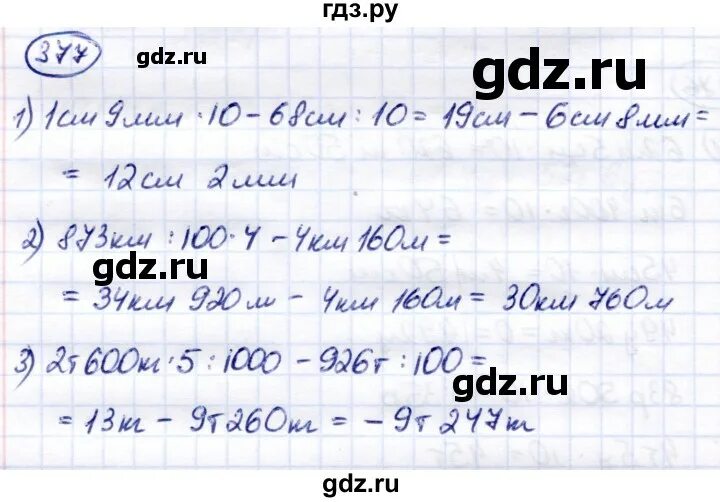 гдз.ру
377 gdz.ru gdz.ru
1) 1см 9мм · 10 – 68см : 10 = 19см – 6см 8мм =
= 12см 2мм
gdz.ru
2) 873км : 100 · 4 – 4км 160м =
gdz.ru
= 34км 920м – 4км 160м = 30км 760м
3) 2т 600кг · 5 : 1000 – 926т : 100 =
gdz.ru
= 13кг – 9т 260кг = – 9т 247кг
gdz.ru gdz.ru